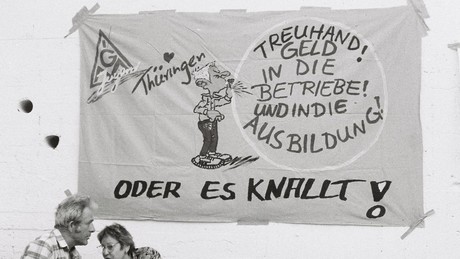 IGM
Thüringen
TREUHAND!
GELD
IN DIE
BETRIEBE!
UND IN DIE
AUSBILDUNG!
ODER ES KNALLT!